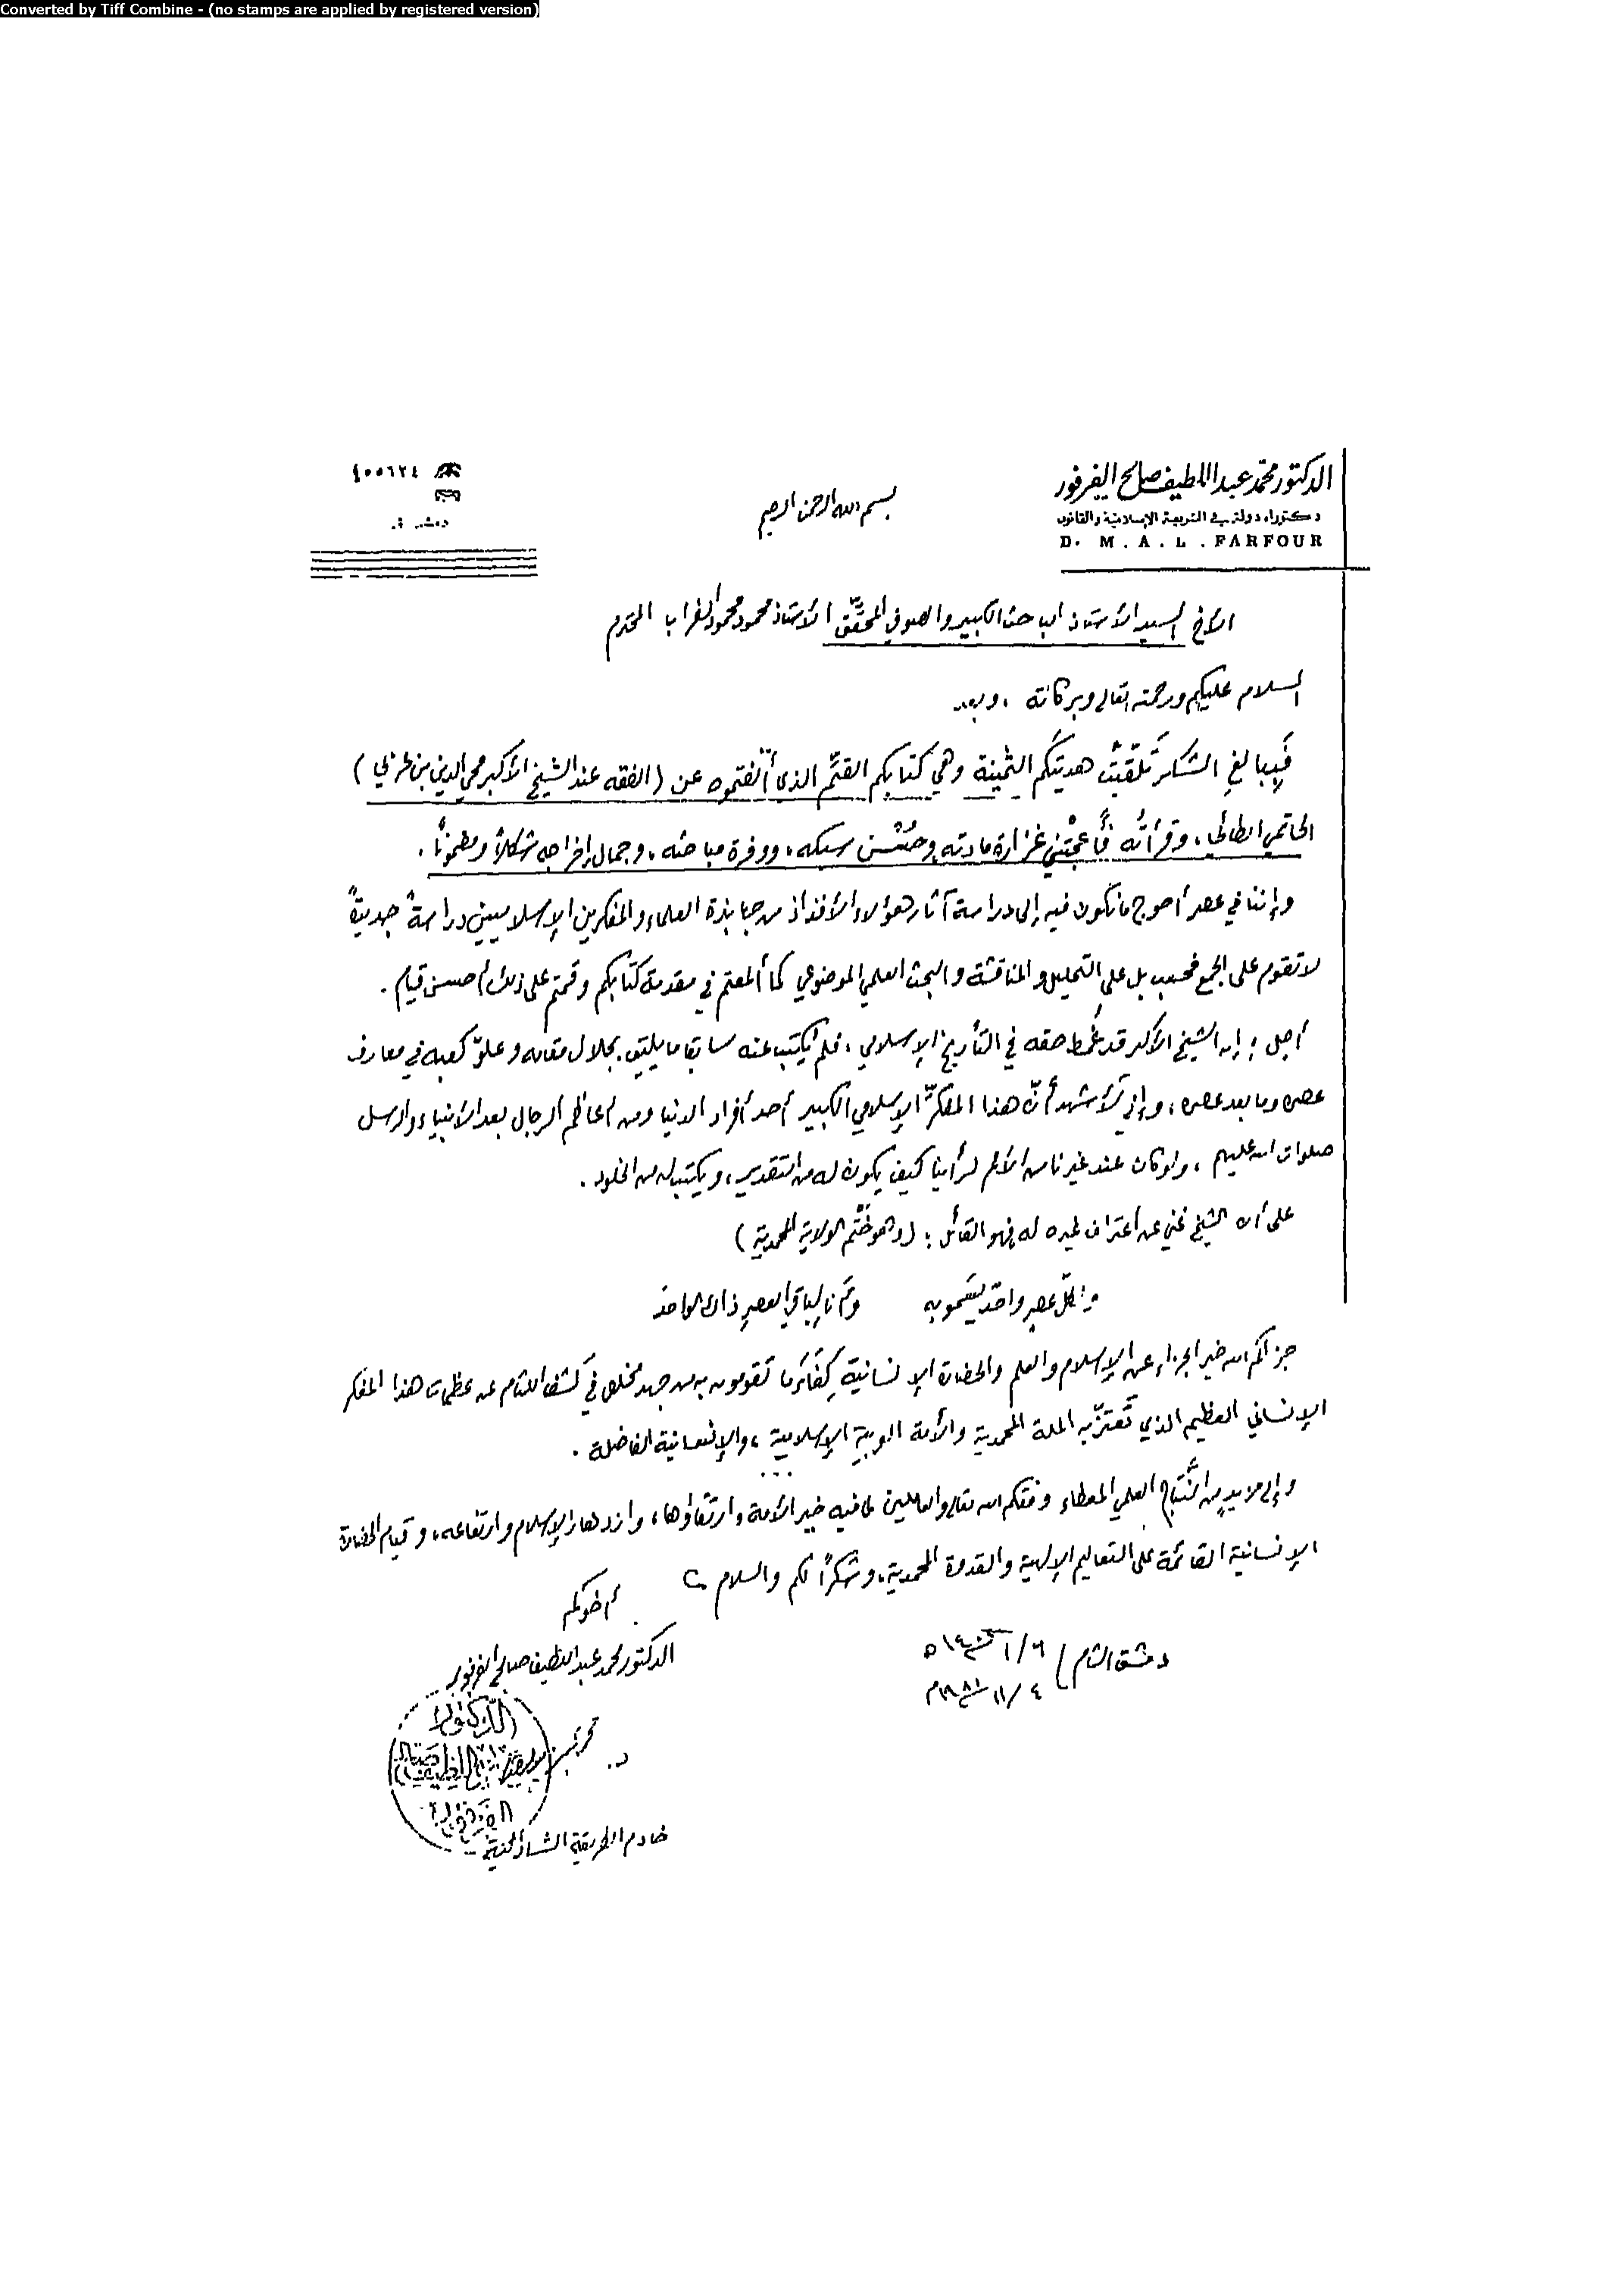 Converted by Tiff Combine - (no stamps are applied by registered version)
الدكتور محمد عبد اللطيف صالح الفرفور
دكتوراه دولة في الشريعة الإسلامية والقانون
D. M. A. L. FARFOUR
بسم الله الرحمن الرحيم
٤٥٥٦٢٤
الأخ السيد الأستاذ الباحث الكبير والصوفي المحقّق الأستاذ محمود محمود الغراب المحترم
السلام عليكم ورحمته تعالى وبركاته ، وبعد
فَبِبالغِ الشكر تَلقّيْتُ هديتَكُم الثمينة وهي كتابكم القيّم الذي ألّفتموه عن (الفقه عند الشيخ الأكبر محيي الدين بن عربي )
الحاتمي الطائي ، وقرأتُه فأعجبَتْني غزارة مادته وحُسْن سبكه ، ووفرة مباحثه ، وجمال إخراجه شكلاً ومضموناً .
وإننا في عصر أحوج ما نكون فيه إلى دراسة آثار هؤلاء الأفذاذ من جهابذة العلماء والمفكرين الإسلاميين دراسةً جديةً
لا تقوم على الجمع فحسب بل على التحليل والمناقشة والبحث العلمي الموضوعي كما ألمعتم في مقدمة كتابكم وقمتم على ذلك أحسن قيام .
أجل ؛ إن الشيخ الأكبر قد غُمط حقه في التأريخ الإسلامي ، فلم يُكتب عنه سابقا ما يليق بجلال مقامه وعلوّ كعبه في معارف
عصره وما بعد عصره ، وإني لَأشهد أنّ هذا المفكّر الإسلامي الكبير أحد أفراد الدنيا ومن أعاظم الرجال بعد الأنبياء والرسل
صلوات الله عليهم ، ولو كان عند غيرنا من الأمم لرأينا كيف يكون له من التقدير ، ويكتب له من الخلود .
على أن الشيخ غني عن اعتراف غيره له فهو القائل : ( وهو خَتْم الولاية المحمدية )
ولكلّ عصرٍ واحدٌ يَسْمو به وأنا لباقي العصرِ ذاك الواحدُ
جزاكم الله خير الجزاء عن الإسلام والعلم والحضارة الإنسانية كِفَاءَ ما تقومون به من جهد مخلص في كشف اللثام عن عظمات هذا المفكر
الإنساني العظيم الذي تَعتزّ به الملة المحمدية والأمة العربية الإسلامية ، والإنسانية الفاضلة .
وإلى مزيدٍ من النِّتاج العلمي المعطاء وفقكم الله تعالى والعاملين لما فيه خير الأمة وارتقاؤها ، وازدهار الإسلام وارتفاعه ، وقيام الحضارة
الإنسانية القائمة على التعاليم الإلهية والقدوة المحمدية ، وشكراً لكم والسلام
أخوكم
الدكتور محمد عبد اللطيف صالح الفرفور
دمشق الشام
خادم الطريقة الشاذلية